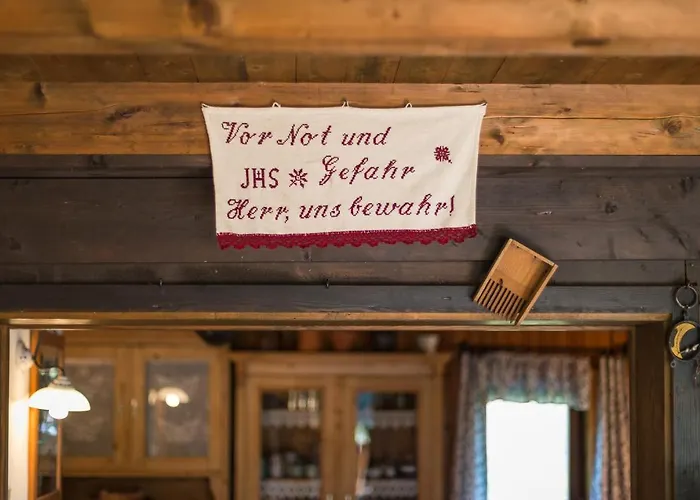 Vor Not und
JHS Gefahr
Herr, uns bewahr!